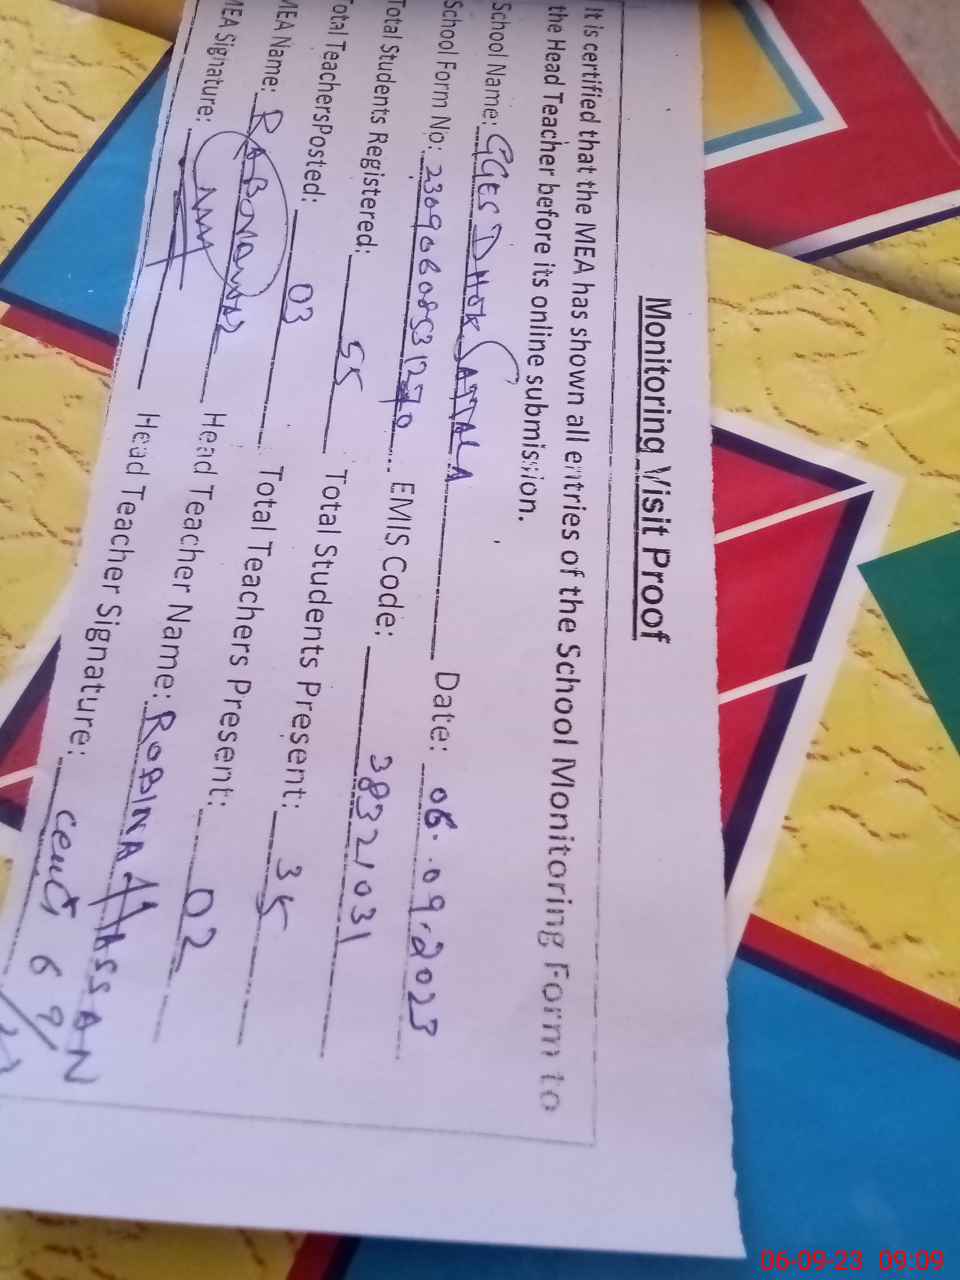 Monitoring Visit Proof
It is certified that the MEA has shown all entries of the School Monitoring Form to
the Head Teacher before its online submission.
School Name: GGES DHOK SATTALA Date: 06.09.2023
School Form No: EMIS Code: 38321031
Total Students Registered: 55 Total Students Present: 35
Total TeachersPosted: 03 Total Teachers Present: 02
MEA Name: Head Teacher Name: ROBINA HASSAN
MEA Signature: Head Teacher Signature:
06-09-23 09:09